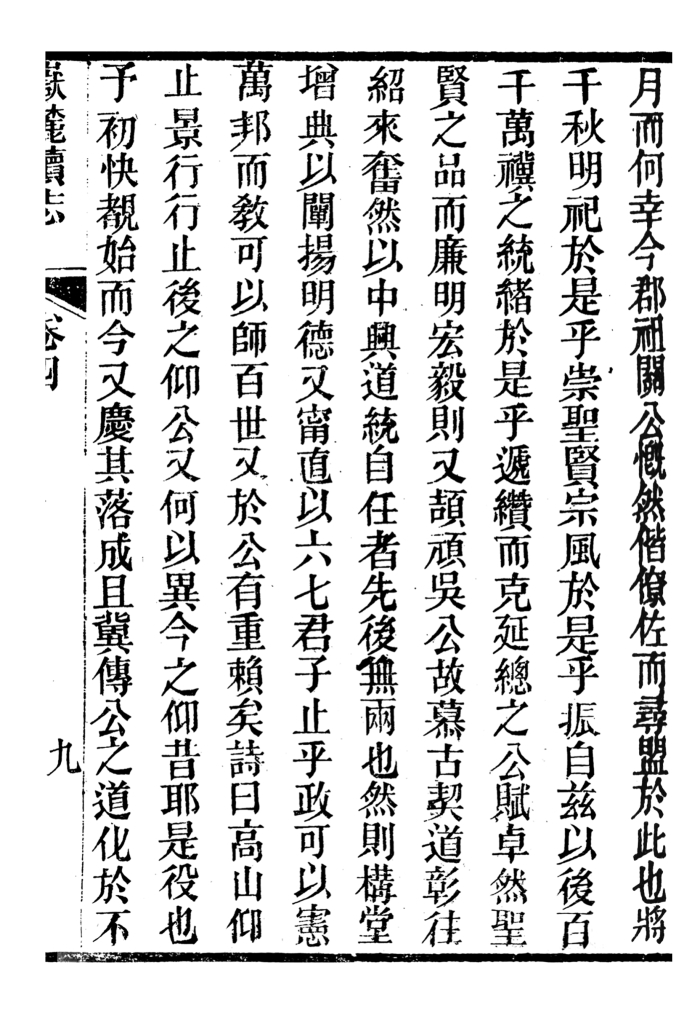 月而何幸今郡祖關公慨然偕僚佐而尋盟於此也將
千秋明祀於是乎崇聖賢宗風於是乎振自茲以後百
千萬禩之統緒於是乎遞纘而克延總之公賦卓然聖
賢之品而廉明宏毅則又頡頏吳公故慕古契道彰往
紹來奮然以中興道統自任者先後無兩也然則構堂
增典以闡揚明德又甯直以六七君子止乎政可以憲
萬邦而敎可以師百世又於公有重賴矣詩曰高山仰
止景行行止後之仰公又何以異今之仰昔耶是役也
予初快覩始而今又慶其落成且冀傳公之道化於不
嶽麓續志 卷四 九